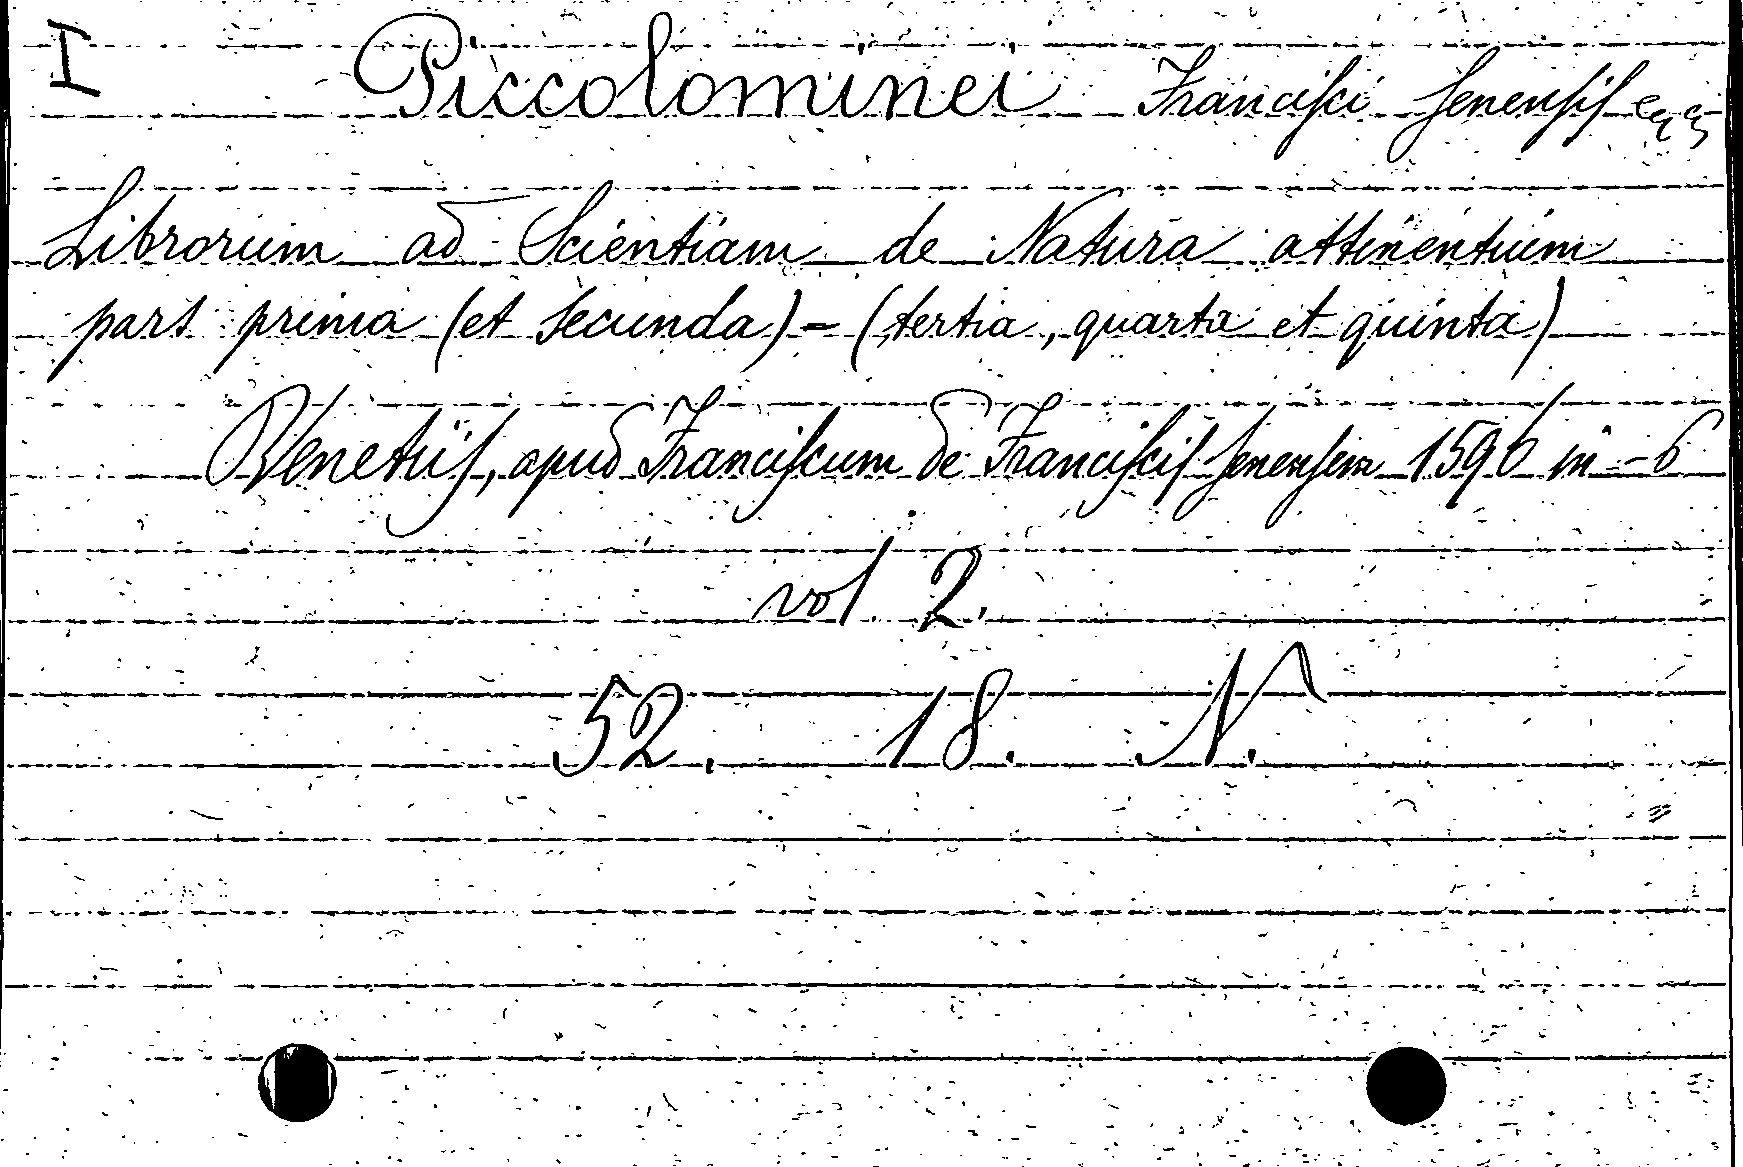 I Piccolominei Francisci Senensis
Librorum ad Scientiam de Natura attinentium
pars prima (et secunda) - (tertia, quarta et quinta)
Venetiis, apud Franciscum de Franciscis Senensem 1596 in - 6
vol. 2.
52. 18. N.